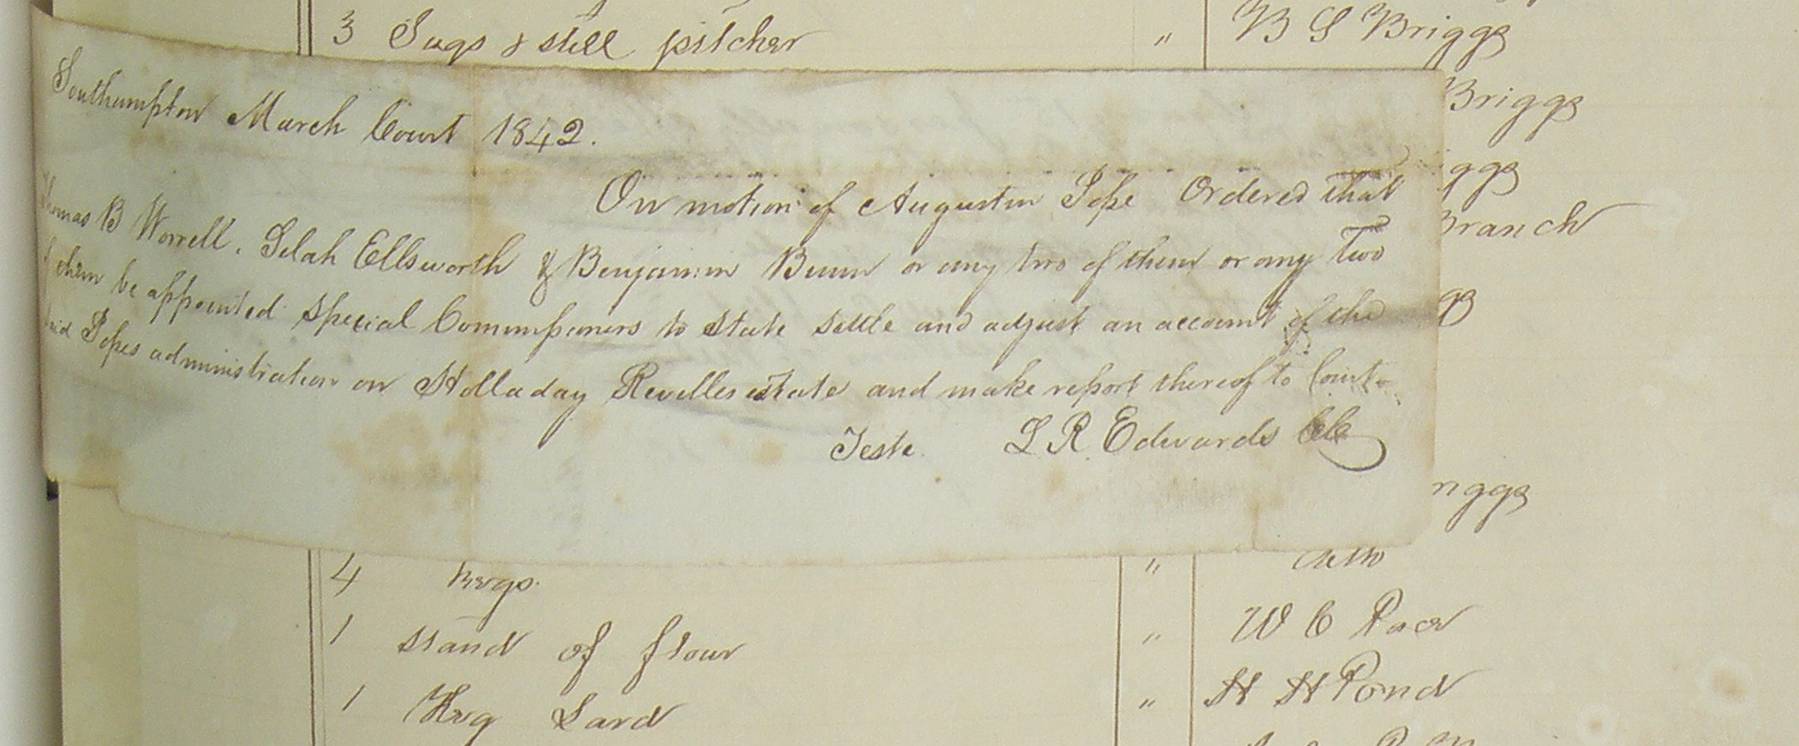 3 Jugs & still pitcher " B S Briggs
Briggs
Southampton March Court 1842.
iggs
On motion of Augustin Pope Ordered that
Branch
Thomas B Worrell. Selah Ellsworth & Benjamin Bunn or any two of them or any two
of them be appointed special Commissioners to state settle and adjust an account of the
said Popes administration on Holladay Revelles estate and make report thereof to Court.
Teste. L R Edwards Clk
riggs
4 kegs "
1 stand of flour " W C
1 Keg Lard " H H Pond